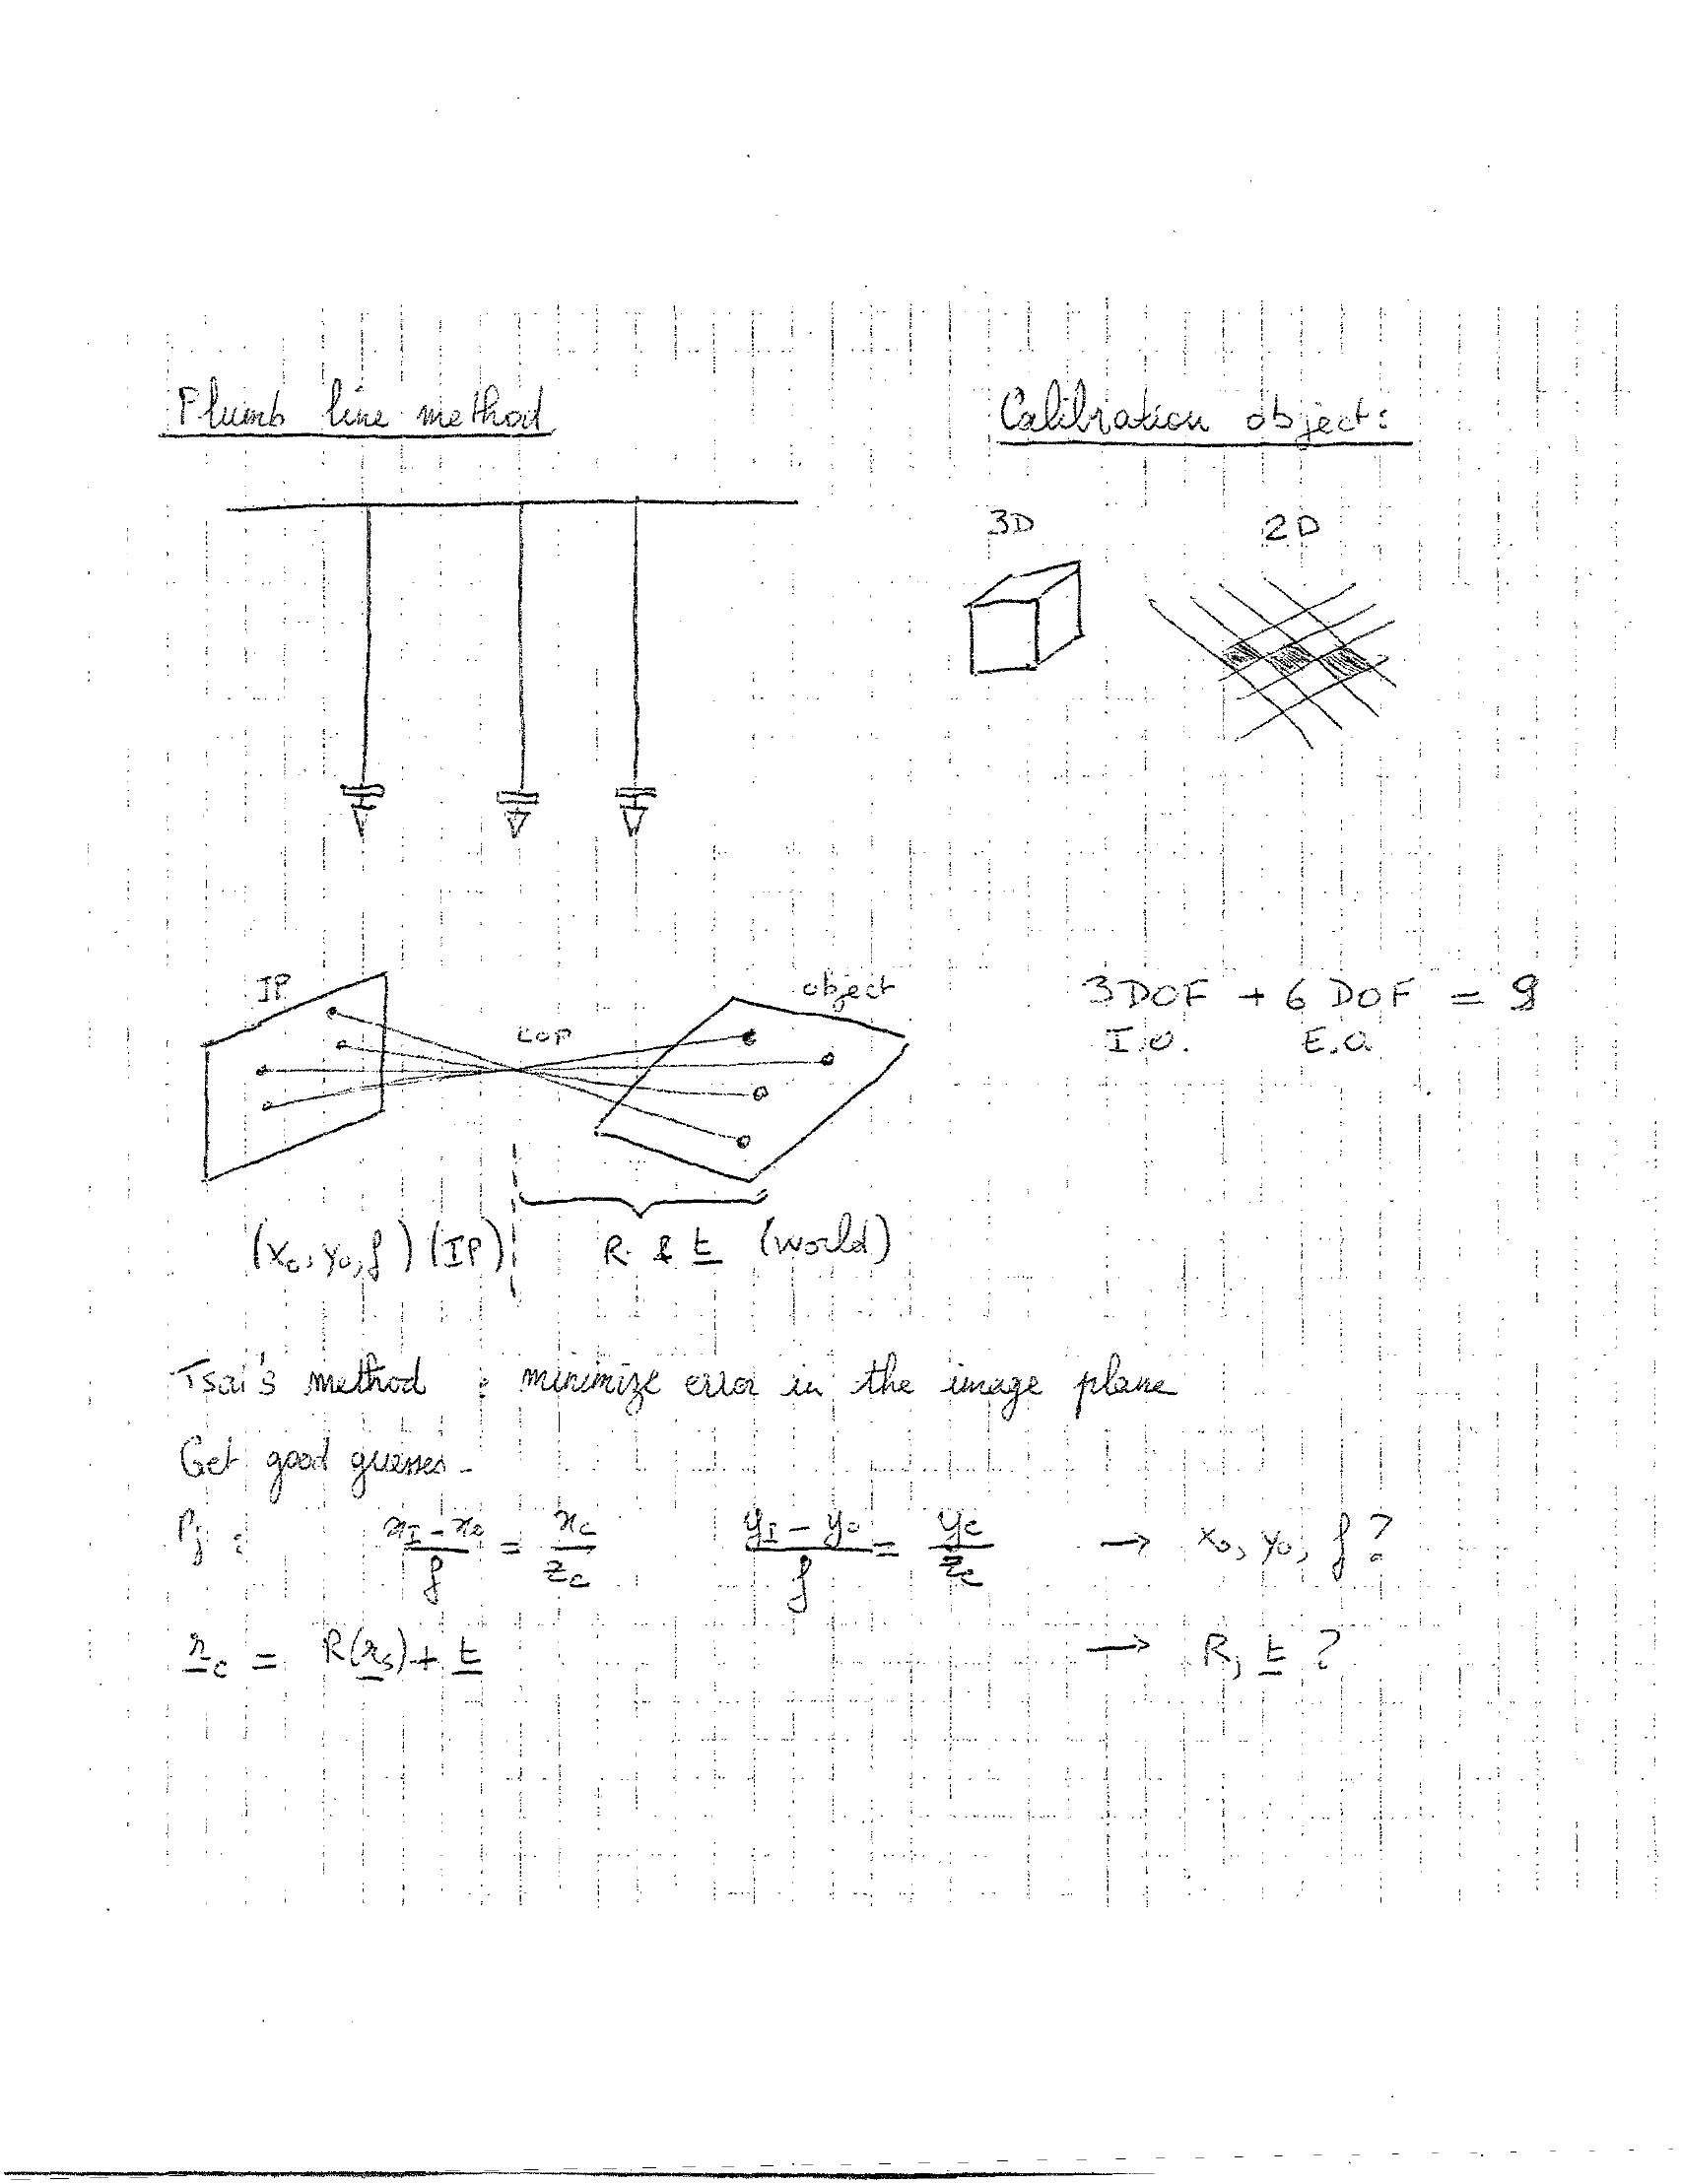 Plumb line method
Calibration object:
3D
2D
IP
COP
object
3 DOF + 6 DOF = 9
I.O. E.O.
(x₀, y₀, f) (IP)
R & t (world)
Tsai's method : minimize error in the image plane
Get good guesses.
Pj : (x_I - x₀)/f = x_c/z_c (y_I - y₀)/f = y_c/z_c → x₀, y₀, f ?
r_c = R(r_s) + t → R, t ?